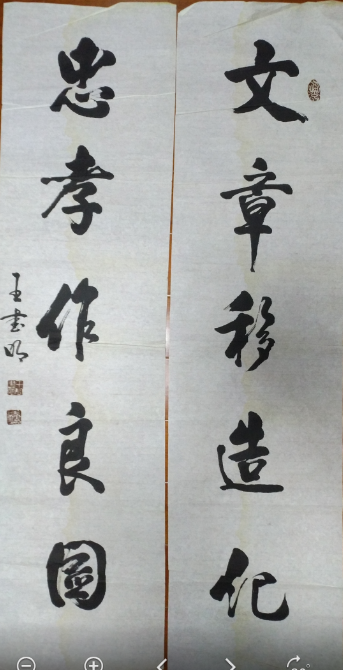 文章移造化
忠孝作良圖
王書明